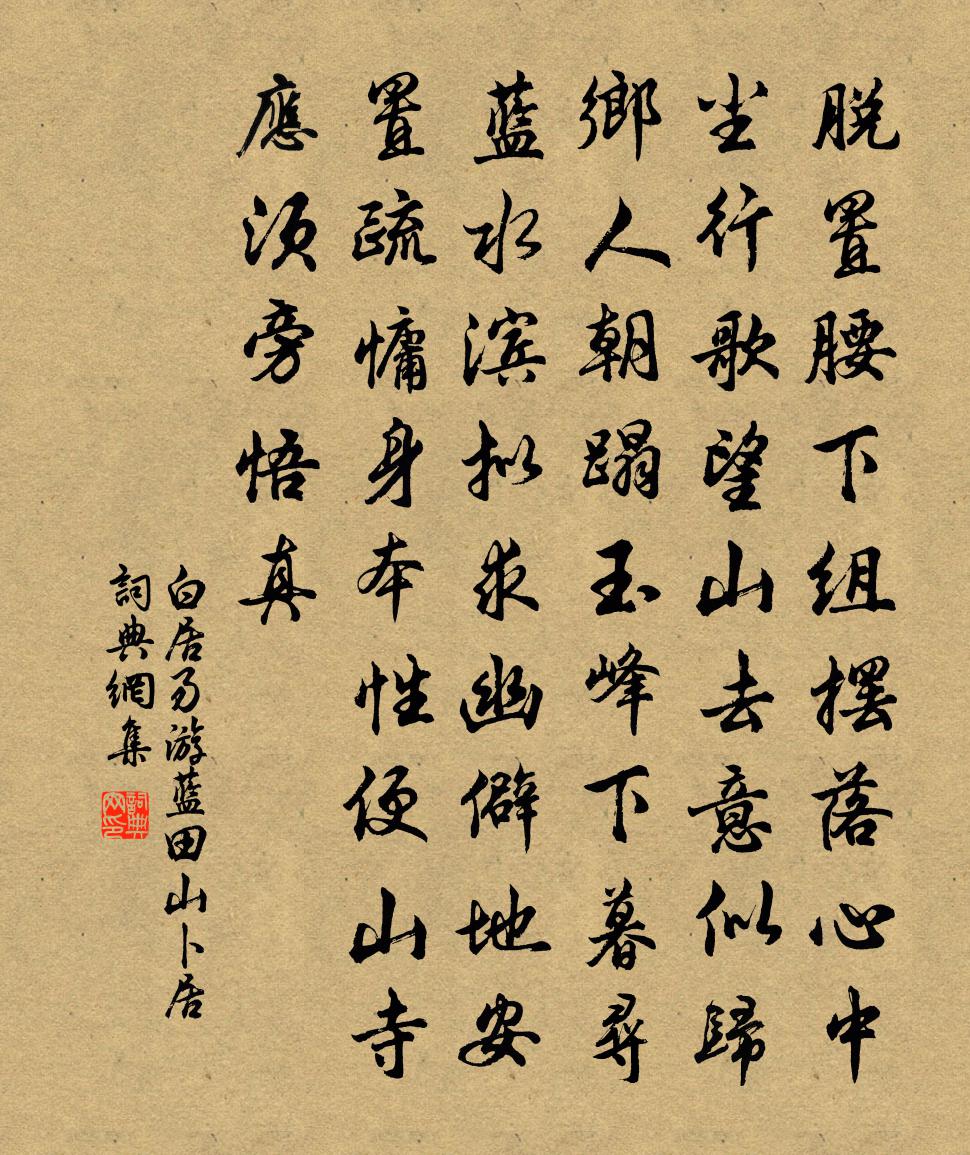 脱置腰下組摆落心中
尘行歌望山去意似歸
鄉人朝蹋玉峰下暮尋
蓝水滨拟求幽僻地安
置疏慵身本性便山寺
應须旁悟真
白居易游蓝田山卜居
詞典網集
詞典网印